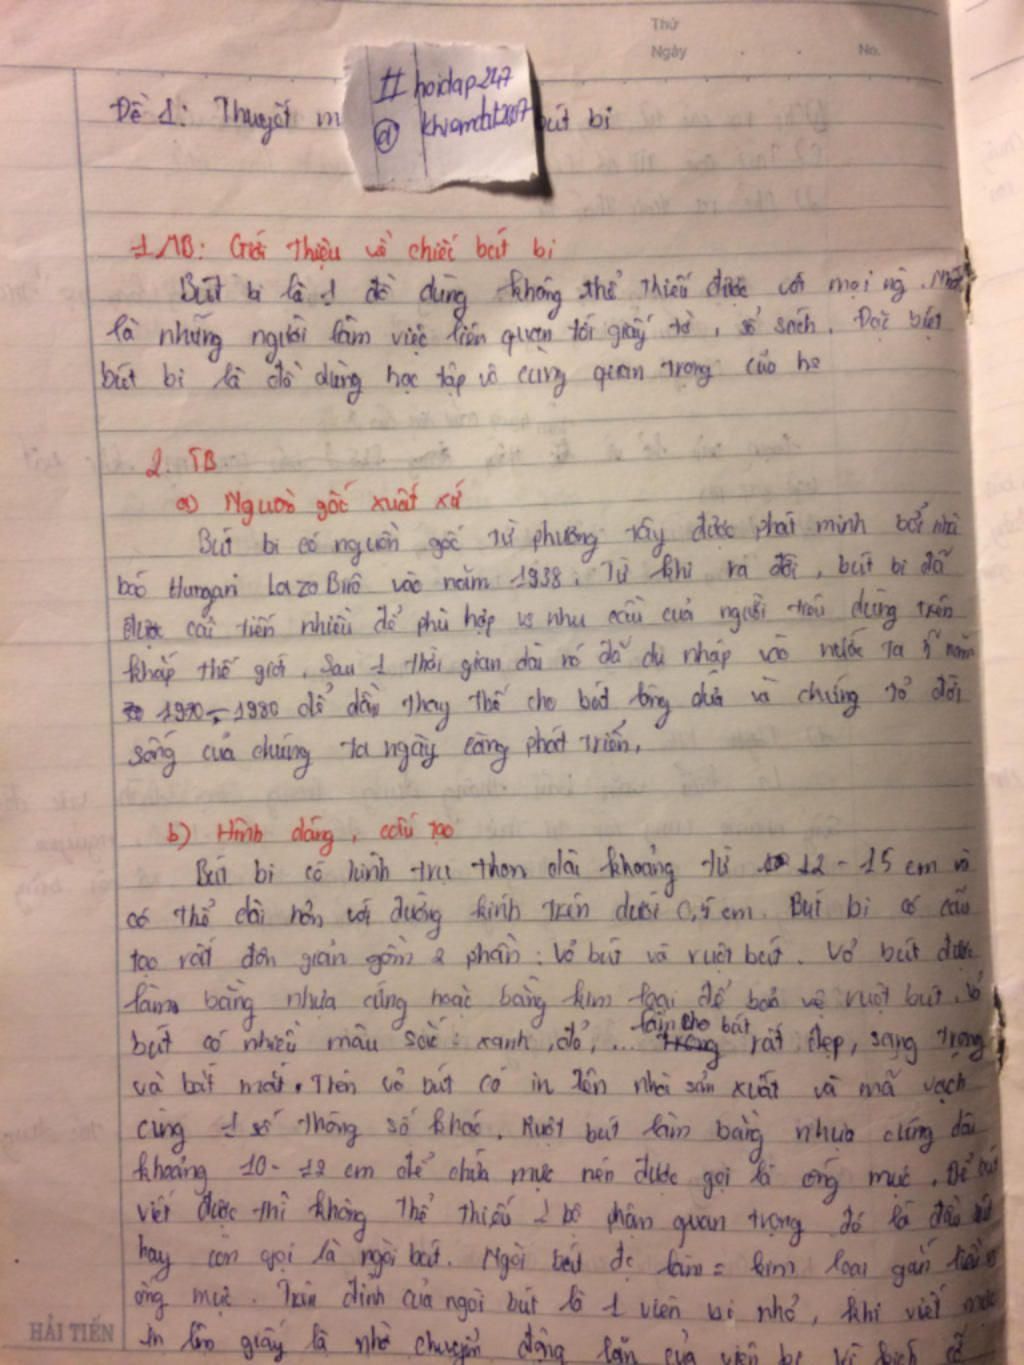 Thứ
Ngày . . No.
# hoidap247
@ khiemdat2007
Đề 1: Thuyết m bút bi
1 MB: Giới thiệu về chiếc bút bi
Bút bi là 1 đồ dùng không thể thiếu được với mọi ng. Nhất
là những người làm việc liên quan tới giấy tờ, sổ sách. Đặc biệt
bút bi là đồ dùng học tập vô cùng quan trọng của hs
2. TB
a) Nguồn gốc xuất xứ
Bút bi có nguồn gốc từ phương tây được phát minh bởi nhà
báo Hungari Lazo Birô vào năm 1938. Từ khi ra đời, bút bi đã
được cải tiến nhiều để phù hợp vs nhu cầu của người tiêu dùng trên
khắp thế giới. Sau 1 thời gian dài nó đã du nhập vào nước ta năm
1970-1980 để dần thay thế cho bút lông dừa và chứng tỏ đời
sống của chúng ta ngày càng phát triển.
b) Hình dáng, cấu tạo
Bút bi có hình trụ thon dài khoảng từ 12-15 cm
có thể dài hơn với đường kính trên dưới 0,5 cm. Bút bi có cấu
tạo rất đơn giản gồm 2 phần: Vỏ bút và ruột bút. Vỏ bút được
làm bằng nhựa cứng hoặc bằng kim loại để bảo vệ ruột bút. Vỏ
bút có nhiều màu sắc: xanh, đỏ, ... làm cho bút rất đẹp, sang trọng
và bắt mắt. Trên vỏ bút có in tên nhà sản xuất và mã vạch
cùng 1 số thông số khác. Ruột bút làm bằng nhựa cứng dài
khoảng 10-12 cm để chứa mực nên được gọi là ống mực. Để bút
viết được thì không thể thiếu 1 bộ phận quan trọng đó là đầu bút
hay còn gọi là ngòi bút. Ngòi bút đc làm = kim loại gắn liền vs
ống mực. Trên đỉnh của ngòi bút là 1 viên bi nhỏ, khi viết mực
in lên giấy là nhờ chuyển động lăn của viên bi
HẢI TIẾN